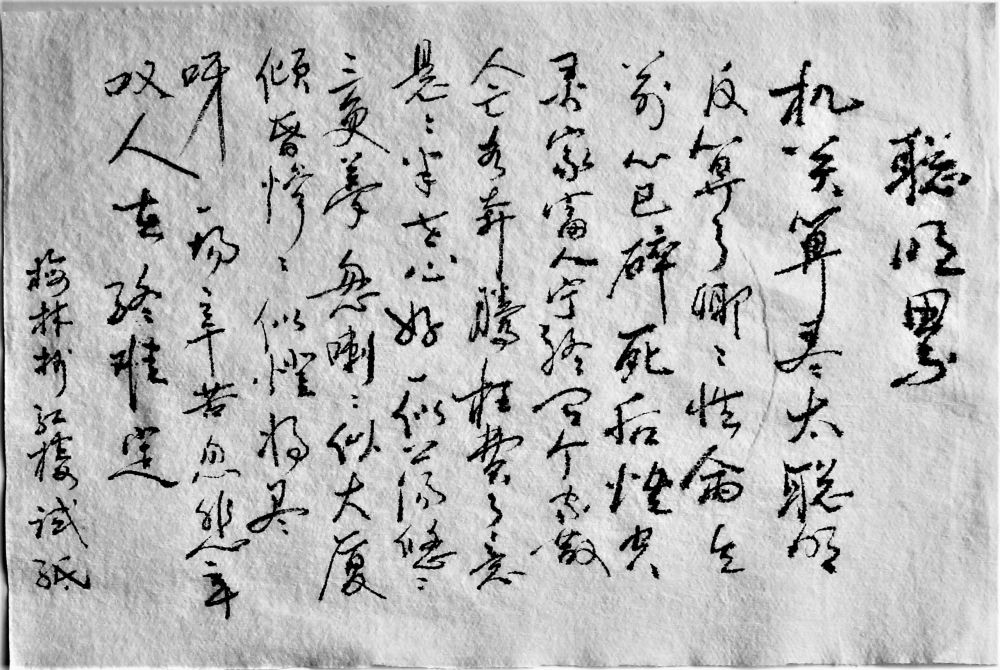 聪明累
机关算尽太聪明
反算了卿〻性命生
前心已碎死后性空
灵家富人宁终有个家散
人亡各奔腾枉费了意
悬〻半世心好一似荡悠〻
三更梦忽喇〻似大厦
倾昏惨〻似燈将尽
呀一场辛苦忽悲辛
叹人世终难定
梅林抄红楼试纸